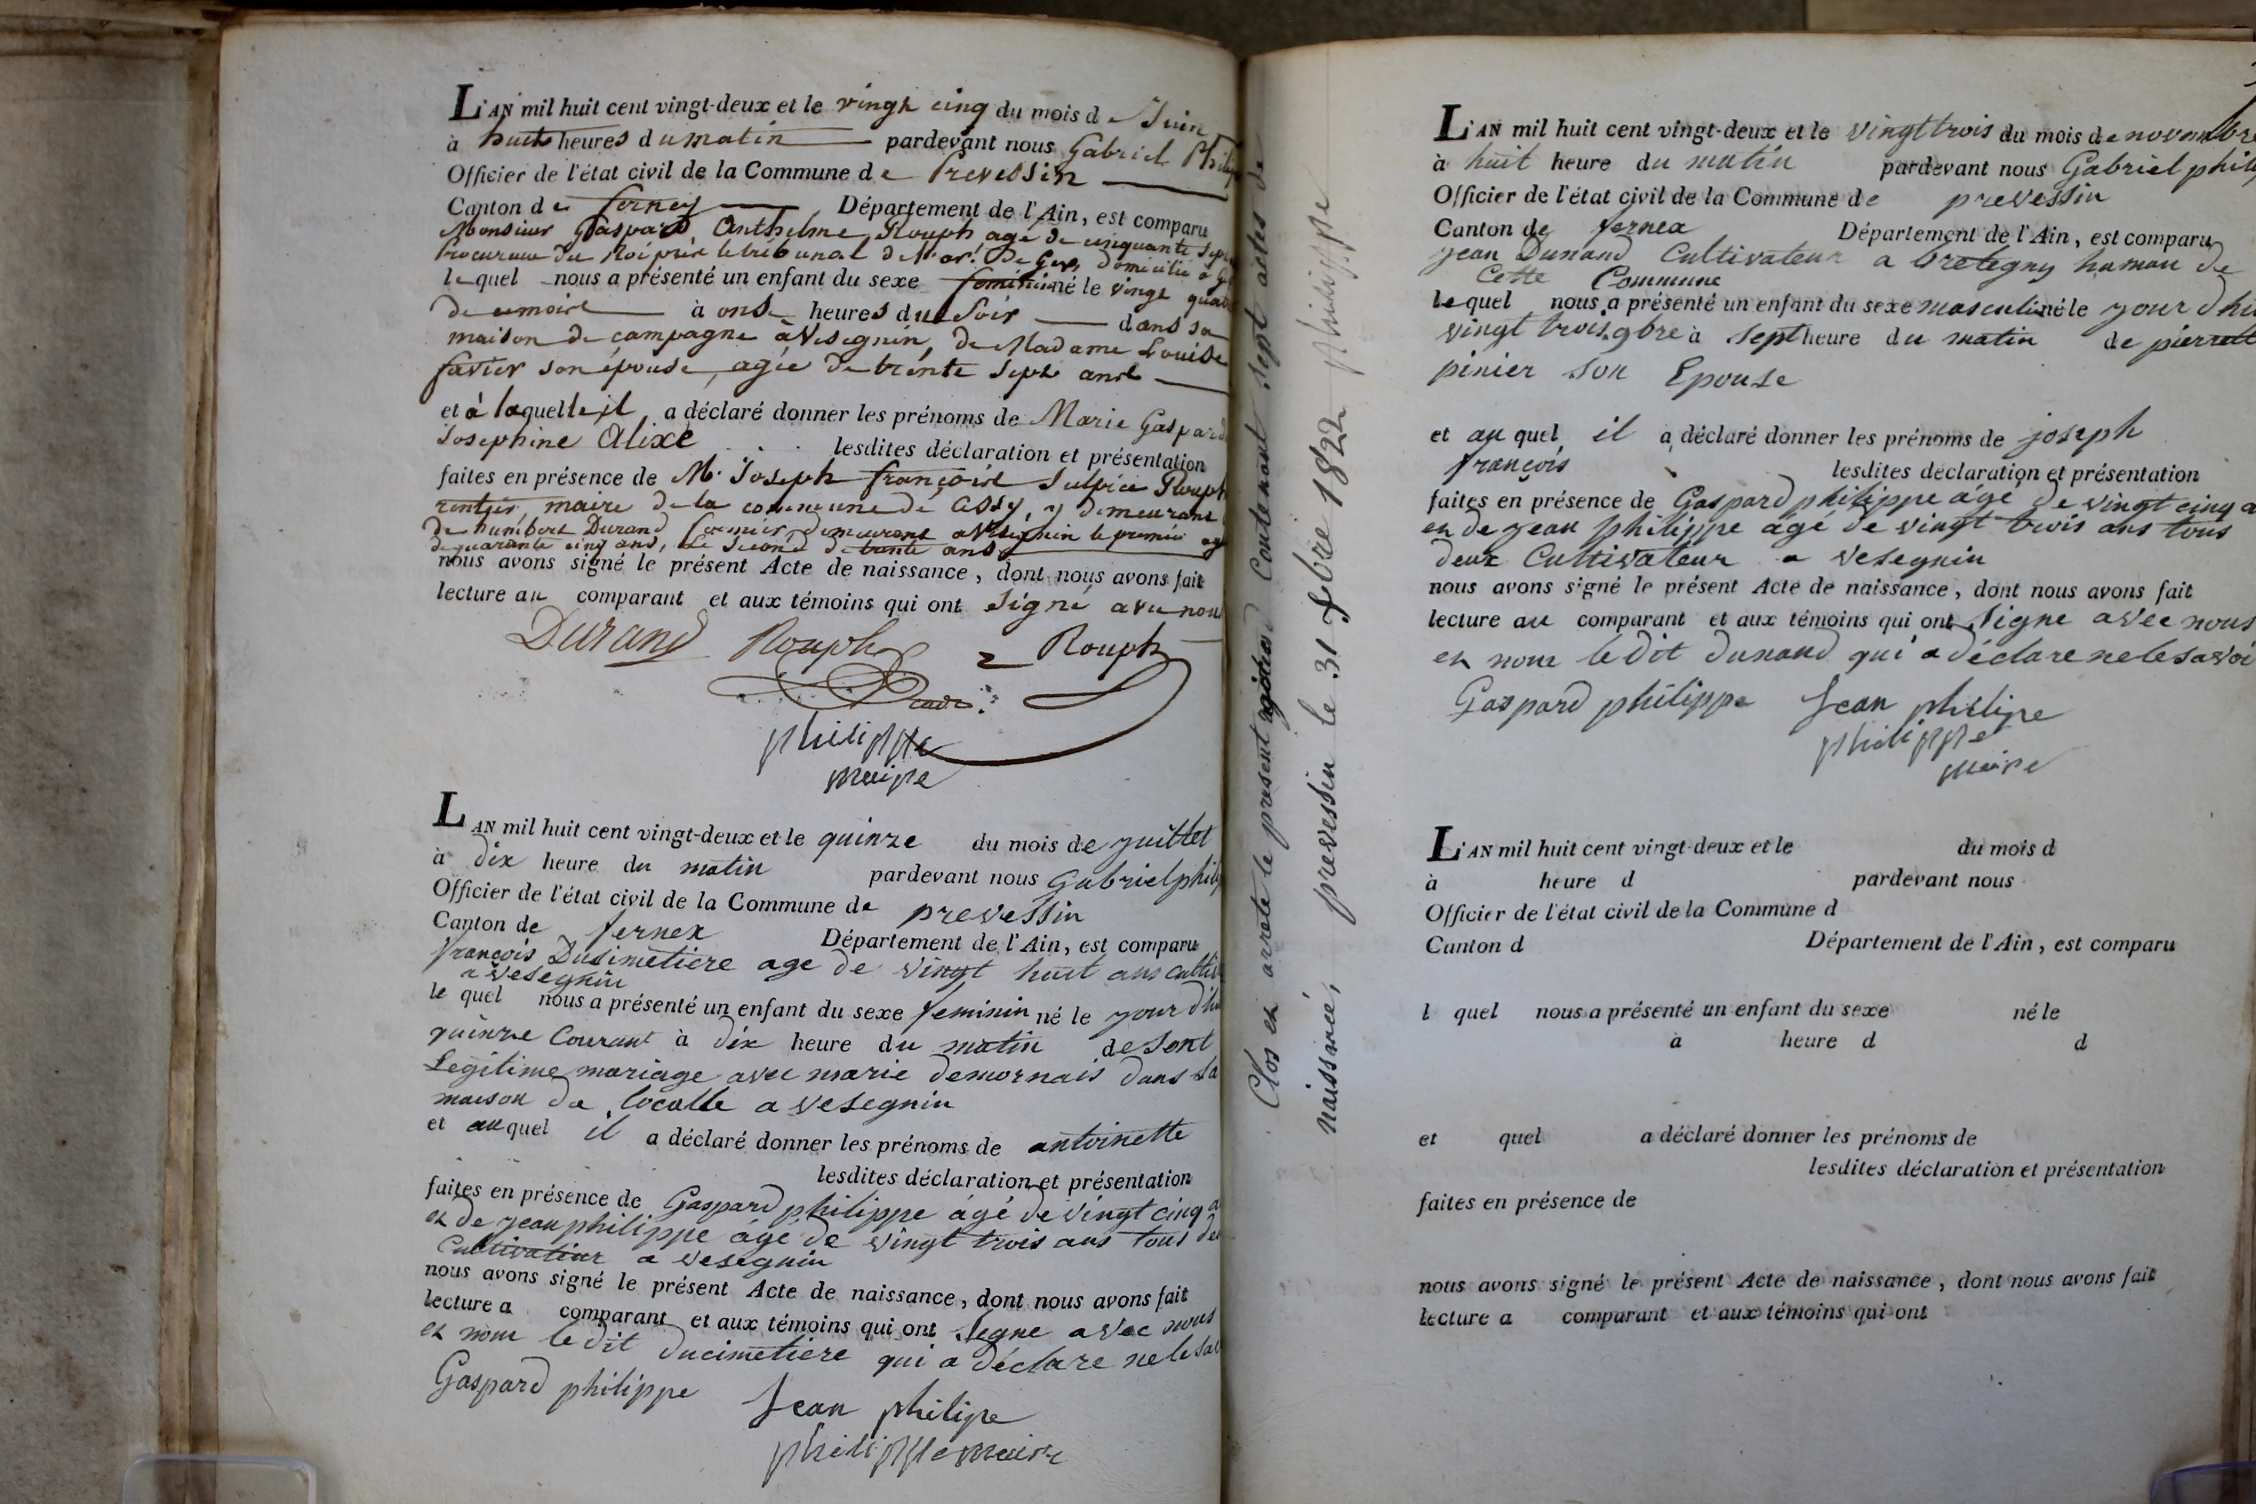 L'AN mil huit cent vingt-deux et le vingt cinq du mois de Juin
à huit heures du matin pardevant nous Gabriel
Officier de l'état civil de la Commune de Prevessin
Canton de ferney Département de l'Ain, est comparu
Monsieur Gaspard Anthelme Rouph agé de cinquante
Procureur du Roi près le tribunal de Gex, domicilié à
lequel nous a présenté un enfant du sexe féminin né le vingt
de ce mois à onze heures du Soir dans sa
maison de campagne à Vesegnin, de Madame Louise
favier son épouse, agée de trente sept ans
et à laquelle il a déclaré donner les prénoms de Marie
Josephine Alixe lesdites déclaration et présentation
faites en présence de Mr Joseph françois Sulpice Rouph
rentier, maire de la commune de Cessy, y demeurant
de humbert Durand fermier, demeurant a Vesegnin le premier
de quarante cinq ans, le Second de trente ans
nous avons signé le présent Acte de naissance, dont nous avons fait
lecture au comparant et aux témoins qui ont signé avec nous
Durand Rouph Rouph
philippe
maire
L'AN mil huit cent vingt-deux et le quinze du mois de juillet
à dix heure du matin pardevant nous Gabriel
Officier de l'état civil de la Commune de prevessin
Canton de fernex Département de l'Ain, est comparu
françois Dusimetiere age de vingt huit ans
a Vesegnin
le quel nous a présenté un enfant du sexe feminin né le jour
quinze Courant à dix heure du matin de sont
Legitime mariage avec marie demornais dans sa
maison de localle a vesegnin
et auquel il a déclaré donner les prénoms de antoinette
lesdites déclaration et présentation
faites en présence de Gaspard philippe âgé de vingt cinq
et de jean philippe âgé de vingt trois ans tous
Cultivateur a vesegnin
nous avons signé le présent Acte de naissance, dont nous avons fait
lecture a comparant et aux témoins qui ont Signe avec nous
et nom le dit ducimetiere qui a déclare ne le
Gaspard philippe Jean philipe
philippe maire
Clos et arrete le present Contenant sept actes de
naissance, prevessin le 31 Xbre 1822 philippe
L'AN mil huit cent vingt-deux et le vingt trois du mois de novembre
à huit heure du matin pardevant nous Gabriel
Officier de l'état civil de la Commune de prevessin
Canton de fernex Département de l'Ain, est comparu
jean Dunand Cultivateur a bretegny hamau de
Cette Commune
lequel nous a présenté un enfant du sexe masculin né le jour
vingt trois 9bre à sept heure du matin de
pinier son Epouse
et au quel il a déclaré donner les prénoms de joseph
françois lesdites déclaration et présentation
faites en présence de Gaspard philippe âgé de vingt cinq
et de jean philippe age de vingt trois ans tous
deux Cultivateur a vesegnin
nous avons signé le présent Acte de naissance, dont nous avons fait
lecture au comparant et aux témoins qui ont Signe avec nous
et nom le dit dunand qui a déclare ne le
Gaspard philippe Jean philipe
philippe
maire
L'AN mil huit cent vingt-deux et le du mois d
à heure d pardevant nous
Officier de l'état civil de la Commune d
Canton d Département de l'Ain, est comparu
l quel nous a présenté un enfant du sexe né le
à heure d d
et quel a déclaré donner les prénoms de
lesdites déclaration et présentation
faites en présence de
nous avons signé le présent Acte de naissance, dont nous avons fait
lecture a comparant et aux témoins qui ont